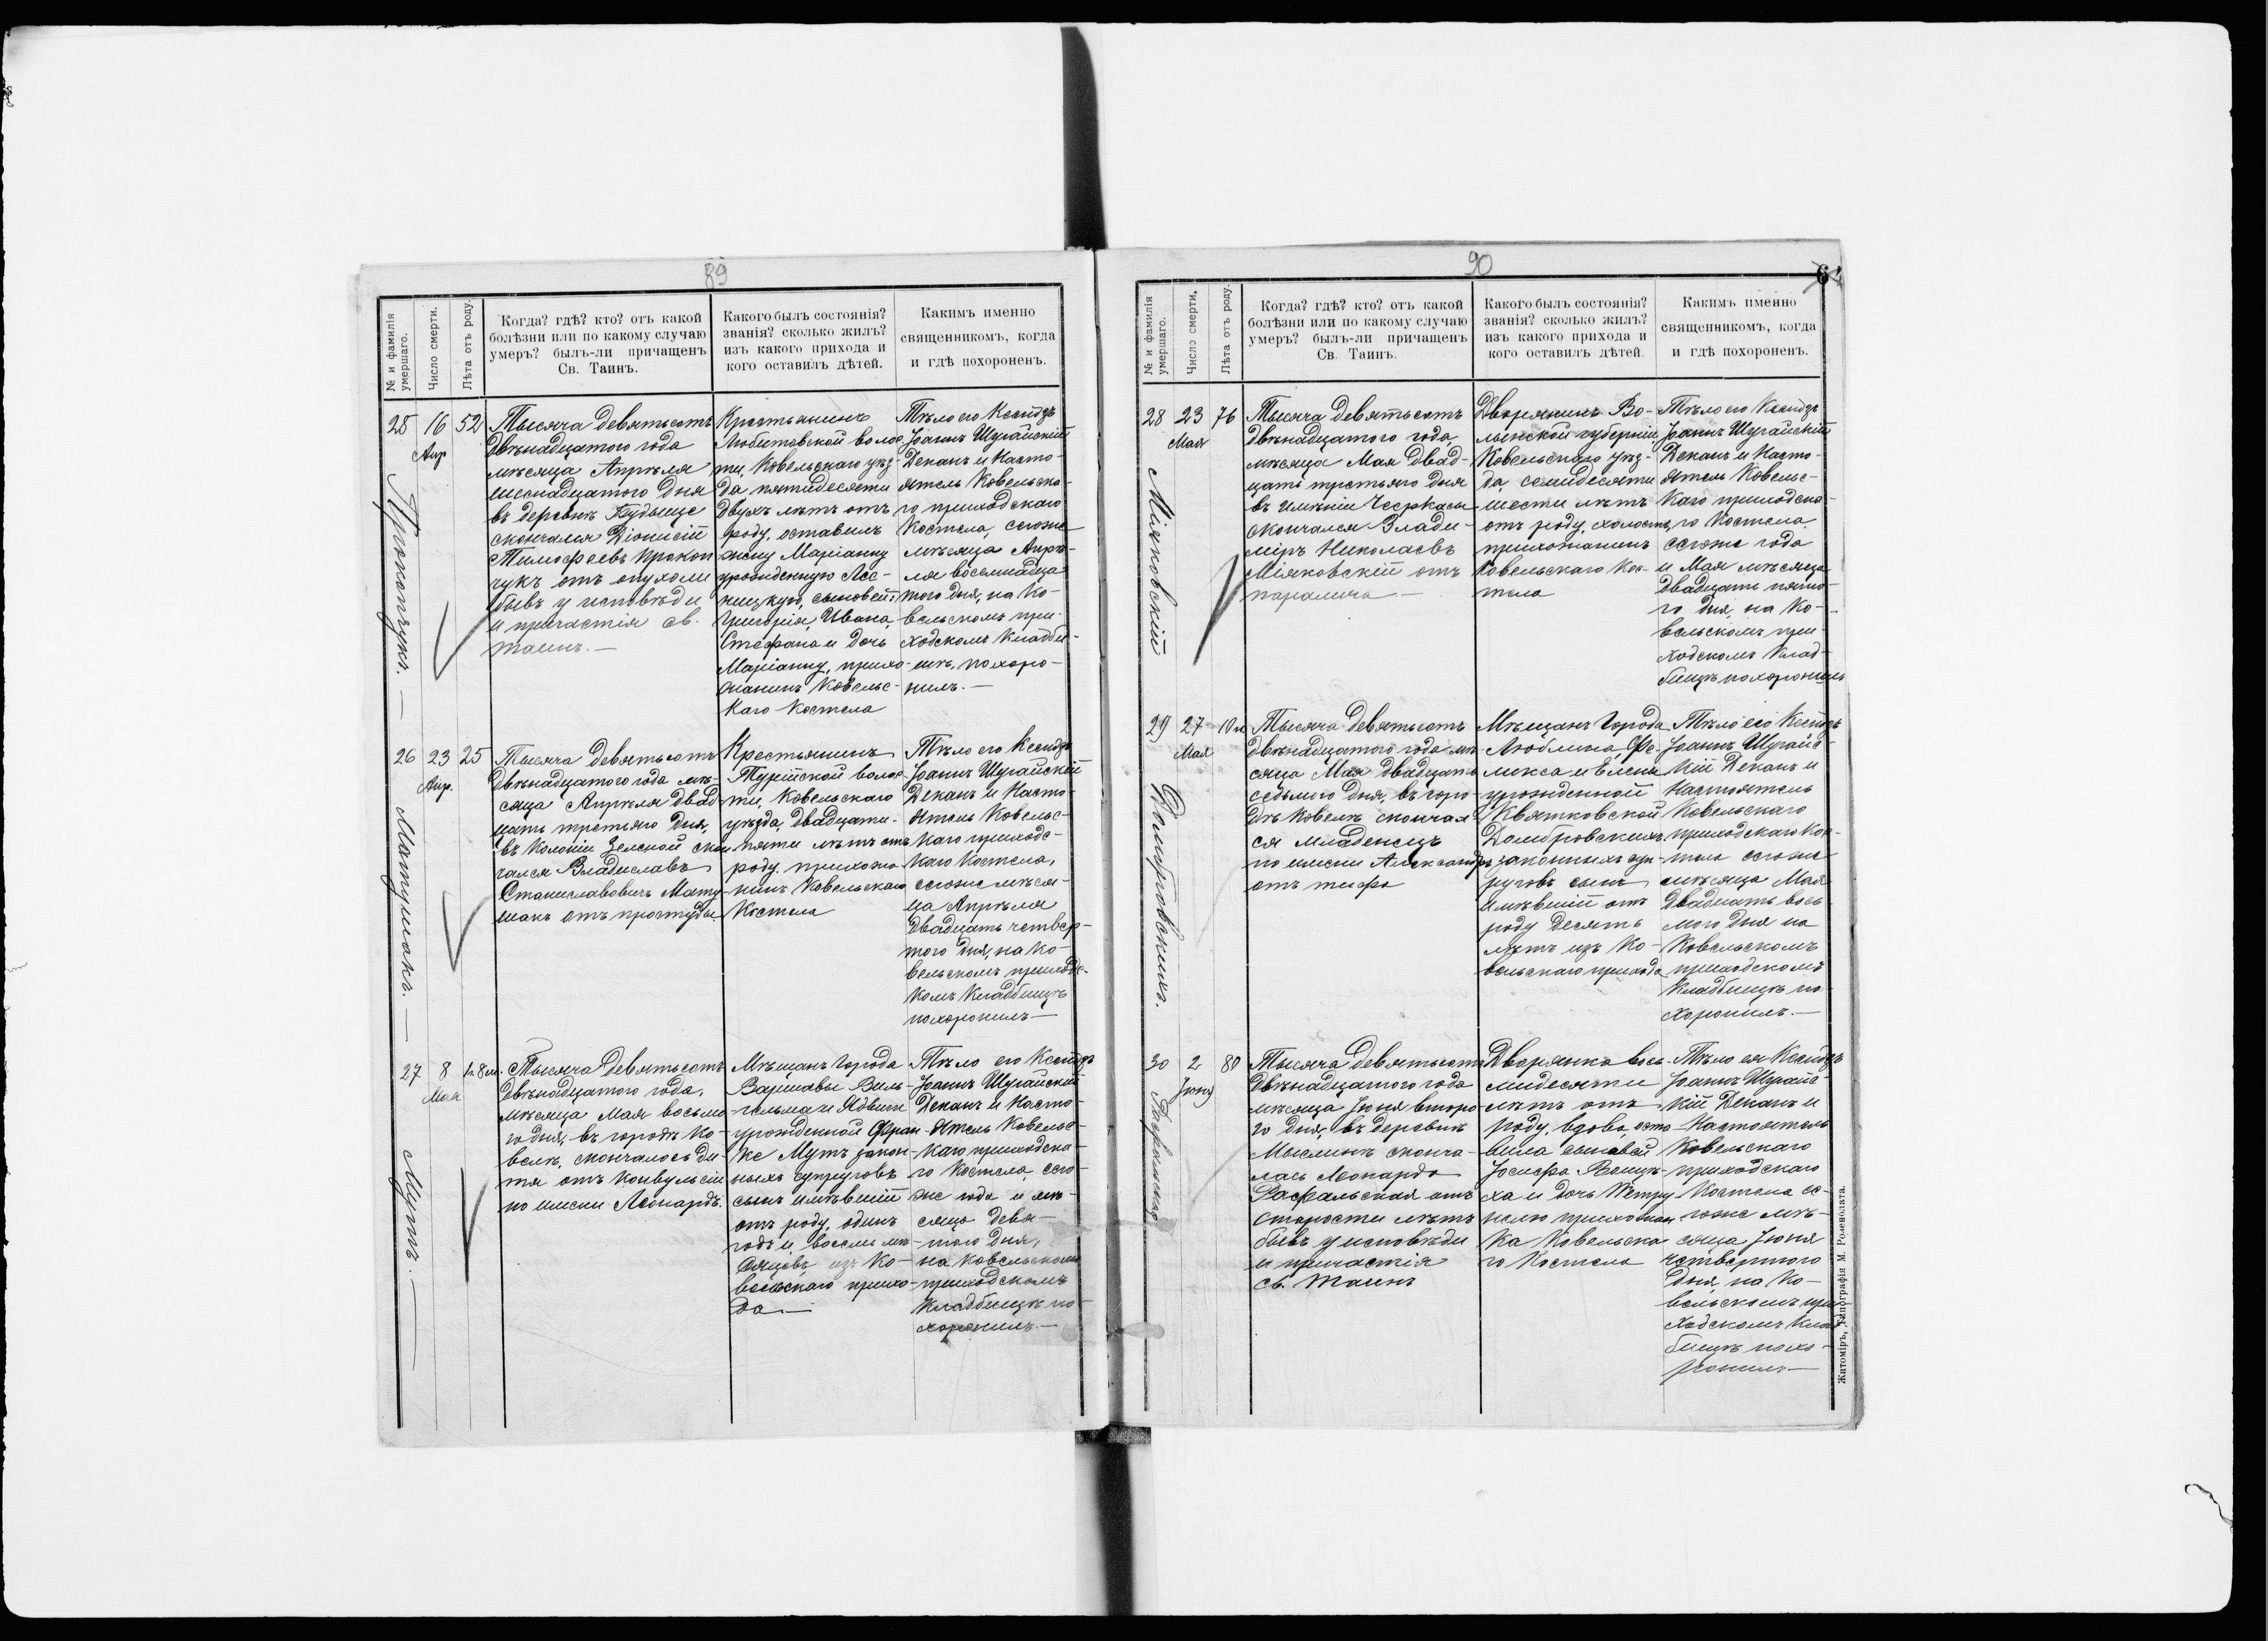 89
№ и фамилія умершаго.
Число смерти.
Лѣта отъ роду.
Когда? гдѣ? кто? отъ какой
болѣзни или по какому случаю
умеръ? былъ-ли причащенъ
Св. Таинъ.
Какого былъ состоянія?
званія? сколько жилъ?
изъ какого прихода и
кого оставилъ дѣтей.
Какимъ именно
священникомъ, когда
и гдѣ похороненъ.
25
16
Апр
52
Прокопчукъ. —
Тысяча девятьсотъ
двѣнадцатого года
мѣсяца Апрѣля
шеснадцатого дня
въ деревнѣ
скончался Діонисій
Тимофеевъ Прокоп
чукъ отъ опухоли
бывъ у исповѣди
и причастія св.
таинъ. —
Крестьянинъ
Любитовской волос
ти, Ковельскаго уѣз-
да пятидесяти
двухъ лѣтъ отъ
роду, оставилъ
жену Маріанну
урожденную
сыновей:
Григорія, Ивана,
Стефана и дочь
Маріанну, прихо-
жанинъ Ковельс-
каго Костела
Тѣло его Ксендзъ
Іоаннъ Шугайскій
Деканъ и Насто-
ятель Ковельска-
го приходскаго
Костела, сегоже
мѣсяца Апрѣ-
ля восемнадца
того дня, на Ко-
вельскомъ при-
ходскомъ кладби-
щѣ, похоро-
нилъ. —
26
23
Апр.
25
Матушакъ. —
Тысяча девятьсотъ
двѣнадцатого года мѣ-
сяца Апрѣля двад
цать третьяго дня,
въ Колоніи Зелской скон
чался Владиславъ
Станиславовичъ Мату-
шакъ отъ простуды
Крестьянинъ
Турійской волос
ти, Ковельскаго
уѣзда, двадцати-
пяти лѣтъ отъ
роду, прихожа-
нинъ Ковельскаго
Костела
Тѣло его Ксендзъ
Іоаннъ Шугайскій
Деканъ и Насто-
ятель Ковельс-
каго приходс-
каго Костела,
сегоже мѣся-
ца Апрѣля
двадцать четвер-
того дня, на Ко-
вельскомъ приходс-
комъ кладбищѣ
похоронилъ —
27
8
Мая
1г. 8м.
Мутъ. —
Тысяча девятьсотъ
двѣнадцатого года,
мѣсяца Мая восьма
го дня, въ городѣ Ко-
велѣ, скончалось ди-
тя отъ конвульсіи
по имени Леонардъ.
Мѣщанъ города
Варшавы Виль-
гельма и Ядвиги
урожденной Фран-
ке Мутъ закон-
ныхъ супруговъ
сынъ имѣвшій
отъ роду, одинъ
годъ и восемь мѣ-
сяцевъ, изъ Ко-
вельскаго прихо-
да. —
Тѣло его Ксендзъ
Іоаннъ Шугайскій
Деканъ и Насто-
ятель Ковельс-
каго приходска-
го Костела, сего-
же года и мѣ-
сяца девя-
таго дня,
на Ковельскомъ
приходскомъ
кладбищѣ по-
хоронилъ. —
90
№ и фамилія умершаго.
Число смерти.
Лѣта отъ роду.
Когда? гдѣ? кто? отъ какой
болѣзни или по какому случаю
умеръ? былъ-ли причащенъ
Св. Таинъ.
Какого былъ состоянія?
званія? сколько жилъ?
изъ какого прихода и
кого оставилъ дѣтей.
Какимъ именно
священникомъ, когда
и гдѣ похороненъ.
28
23
Мая
76
Міяковскій
Тысяча девятьсотъ
двѣнадцатого года,
мѣсяца Мая двад-
цать третьяго дня
въ имѣніи Черкасы
скончался Влади-
міръ Николаевъ
Міяковскій отъ
паралича —
Дворянинъ Во-
лынской губерніи
Ковельскаго уѣз-
да, семидесяти
шести лѣтъ
отъ роду, холостъ,
прихожанинъ
Ковельскаго Кос-
тела
Тѣло его Ксендзъ
Іоаннъ Шугайскій
Деканъ и Насто-
ятель Ковельс-
каго приходска-
го Костела
сегоже года
и Мая мѣсяца
двадцать пято-
го дня, на Ко-
вельскомъ при-
ходскомъ клад-
бищѣ похоронилъ
29
27
Мая
10 л
Домбровскихъ.
Тысяча девятьсотъ
двѣнадцатого года мѣ
сяца Мая двадцать
седьмого дня, въ горо-
дѣ Ковелѣ скончал
ся младенецъ
по имени Александръ
отъ тифа
Мѣщанъ города
Люблина, Фе-
ликса и Елены
урожденной
Квятковской
Домбровскихъ
законныхъ суп-
руговъ сынъ
имѣвшій отъ
роду десять
лѣтъ изъ Ко-
вельскаго прихода
Тѣло его Ксендзъ
Іоаннъ Шугайс-
кій Деканъ и
Настоятель
Ковельскаго
приходскаго Кос-
тела сегоже
мѣсяца Мая
двадцать вось
мого дня на
Ковельскомъ
приходскомъ
кладбищѣ по-
хоронилъ. —
30
2
Іюня
80
Рафальская
Тысяча девятьсотъ
двѣнадцатого года
мѣсяца Іюня второ-
го дня, въ деревнѣ
Мыслинѣ сконча-
лась Леонарда
Рафальская отъ
старости лѣтъ
бывъ у исповѣди
и причастія
св. таинъ
Дворянка вось-
мидесяти
лѣтъ отъ
роду, вдова, оста-
вила сыновей
Іосифа,
ха и дочь Петру
нелю прихожан
ка Ковельска-
го Костела
Тѣло ея Ксендзъ
Іоаннъ Шугайс-
кій Деканъ и
Настоятель
Ковельскаго
приходскаго
Костела се-
гоже мѣ-
сяца Іюня
четвертого
дня, на Ко-
вельскомъ при-
ходскомъ клад
бищѣ похо-
ронилъ —
Житоміръ, Типографія М. Роменблата.